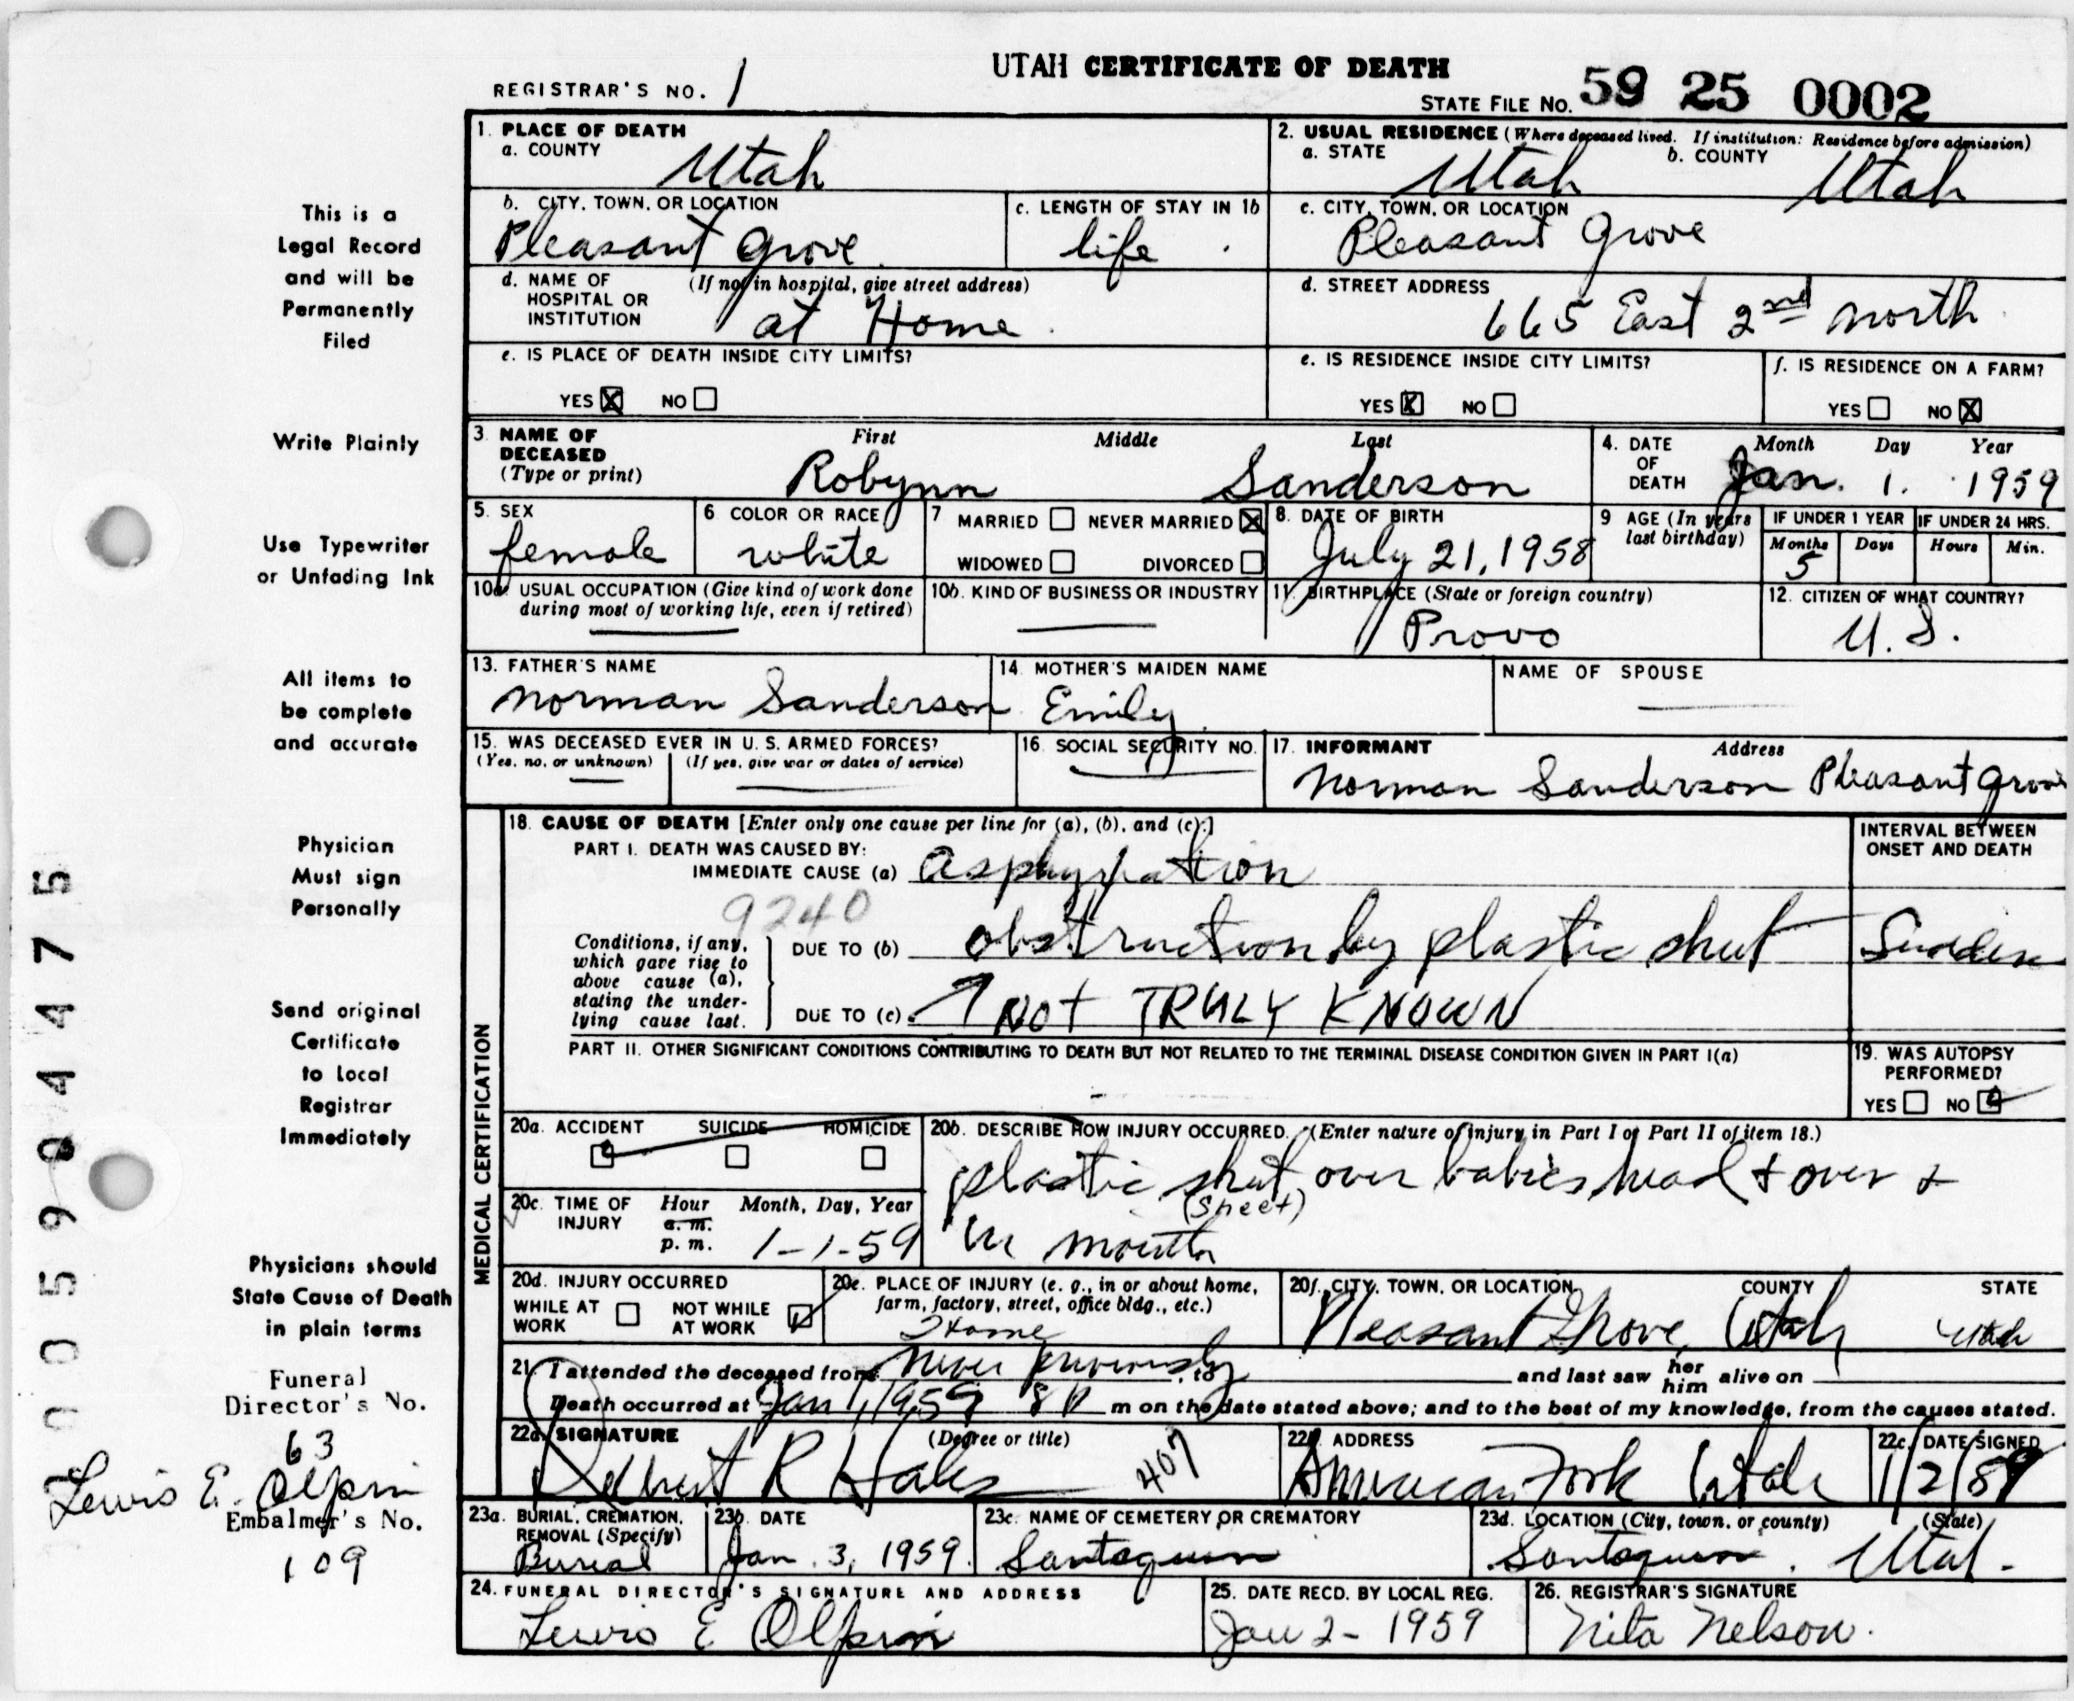 UTAH CERTIFICATE OF DEATH
REGISTRAR'S NO. 1
STATE FILE NO. 59 25 0002
1. PLACE OF DEATH
a. COUNTY
Utah
2. USUAL RESIDENCE (Where deceased lived. If institution: Residence before admission)
a. STATE
Utah
b. COUNTY
Utah
b. CITY, TOWN, OR LOCATION
Pleasant Grove
c. LENGTH OF STAY IN 1b
life
c. CITY, TOWN, OR LOCATION
Pleasant Grove
d. NAME OF HOSPITAL OR INSTITUTION
(If not in hospital, give street address)
at Home
d. STREET ADDRESS
665 East 2nd North
e. IS PLACE OF DEATH INSIDE CITY LIMITS?
YES X NO
e. IS RESIDENCE INSIDE CITY LIMITS?
YES X NO
f. IS RESIDENCE ON A FARM?
YES NO X
3. NAME OF DECEASED
(Type or print)
First Middle Last
Robynn Sanderson
4. DATE OF DEATH
Month Day Year
Jan. 1. 1959
5. SEX
female
6 COLOR OR RACE
white
7 MARRIED NEVER MARRIED X
WIDOWED DIVORCED
8. DATE OF BIRTH
July 21, 1958
9 AGE (In years last birthday)
IF UNDER 1 YEAR
Months Days
5
IF UNDER 24 HRS.
Hours Min.
10a. USUAL OCCUPATION (Give kind of work done during most of working life, even if retired)
10b. KIND OF BUSINESS OR INDUSTRY
11. BIRTHPLACE (State or foreign country)
Provo
12. CITIZEN OF WHAT COUNTRY?
U.S.
13. FATHER'S NAME
Norman Sanderson
14. MOTHER'S MAIDEN NAME
Emily
NAME OF SPOUSE
15. WAS DECEASED EVER IN U. S. ARMED FORCES?
(Yes, no, or unknown) (If yes, give war or dates of service)
16. SOCIAL SECURITY NO.
17. INFORMANT Address
Norman Sanderson Pleasant Grove
MEDICAL CERTIFICATION
18. CAUSE OF DEATH [Enter only one cause per line for (a), (b), and (c).]
PART I. DEATH WAS CAUSED BY:
IMMEDIATE CAUSE (a) Asphyxiation
INTERVAL BETWEEN ONSET AND DEATH
9240
Conditions, if any, which gave rise to above cause (a), stating the underlying cause last.
DUE TO (b) obstruction by plastic sheet
Sudden
DUE TO (c) NOT TRULY KNOWN
PART II. OTHER SIGNIFICANT CONDITIONS CONTRIBUTING TO DEATH BUT NOT RELATED TO THE TERMINAL DISEASE CONDITION GIVEN IN PART I(a)
19. WAS AUTOPSY PERFORMED?
YES NO
20a. ACCIDENT SUICIDE HOMICIDE
20b. DESCRIBE HOW INJURY OCCURRED. (Enter nature of injury in Part I or Part II of item 18.)
plastic sheet over babies head & over &
(Sheet)
in mouth
20c. TIME OF INJURY
Hour Month, Day, Year
a. m.
p. m. 1-1-59
20d. INJURY OCCURRED
WHILE AT WORK NOT WHILE AT WORK
20e. PLACE OF INJURY (e. g., in or about home, farm, factory, street, office bldg., etc.)
Home
20f. CITY, TOWN, OR LOCATION COUNTY STATE
Pleasant Grove, Utah Utah
21. I attended the deceased from never previously, to and last saw her him alive on
Death occurred at Jan 1, 1959 8 P m on the date stated above; and to the best of my knowledge, from the causes stated.
22a. SIGNATURE (Degree or title)
Delbert R Hales 407
22b. ADDRESS
American Fork Utah
22c. DATE SIGNED
1/2/59
23a. BURIAL, CREMATION, REMOVAL (Specify)
Burial
23b. DATE
Jan. 3, 1959.
23c. NAME OF CEMETERY OR CREMATORY
Santaquin
23d. LOCATION (City, town, or county) (State)
Santaquin. Utah.
24. FUNERAL DIRECTOR'S SIGNATURE AND ADDRESS
Lewis E Olpin
25. DATE RECD. BY LOCAL REG.
Jan 2- 1959
26. REGISTRAR'S SIGNATURE
Nita Nelson.
This is a
Legal Record
and will be
Permanently
Filed
Write Plainly
Use Typewriter
or Unfading Ink
All items to
be complete
and accurate
Physician
Must sign
Personally
Send original
Certificate
to Local
Registrar
Immediately
Physicians should
State Cause of Death
in plain terms
Funeral
Director's No.
63
Lewis E. Olpin
Embalmer's No.
109